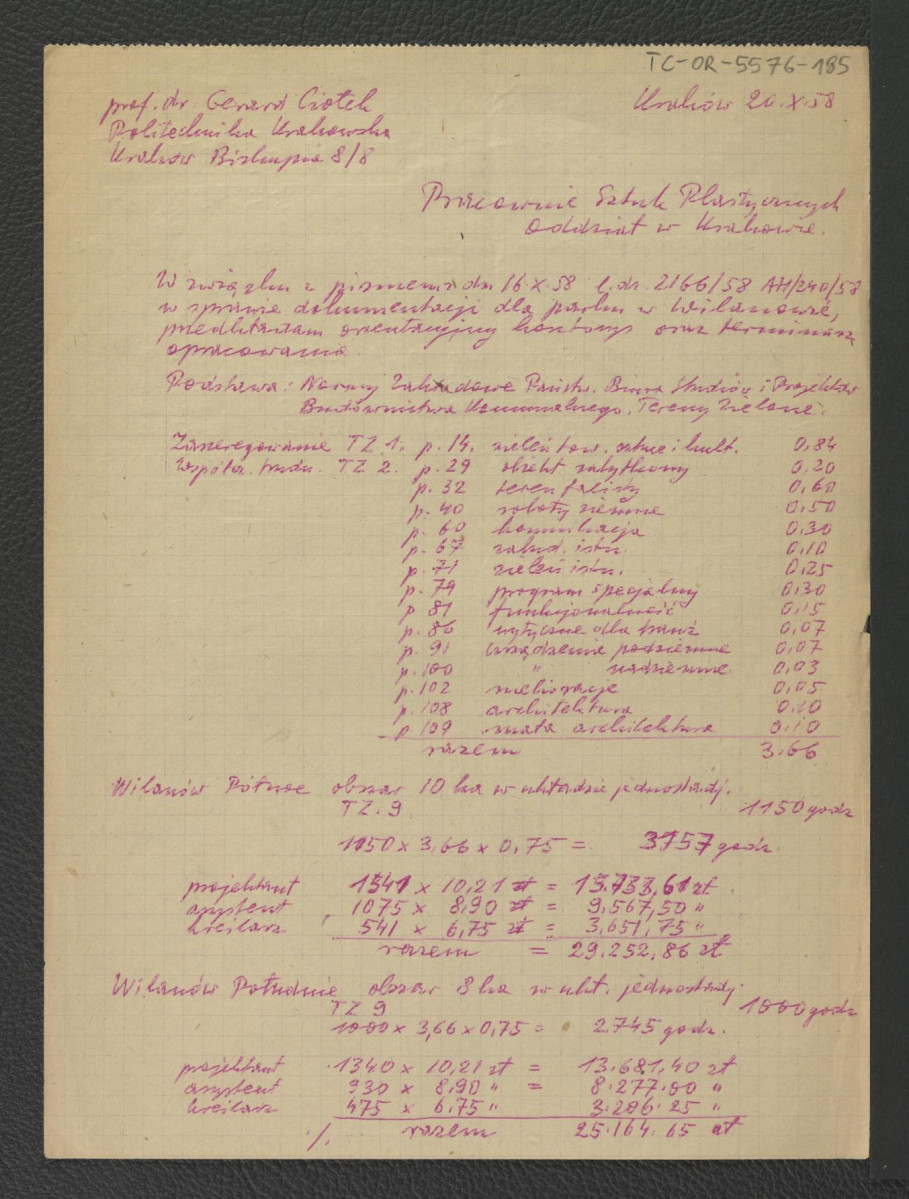 TC-OR-5576-185
prof. dr. Gerard Ciołek
Kraków 20.X.58
Politechnika Krakowska
Kraków Biskupia 8/8
Pracownie Sztuk Plastycznych
Oddział w Krakowie.
W związku z pismem z dn 16.X.58 l.dz. 2166/58 AH/240/58
w sprawie dokumentacji dla parku w Wilanowie,
przedkładam orientacyjny kosztorys oraz terminarz
opracowania.
Podstawa: Normy Zakładowe Państw. Biura Studiów i Projektów
Budownictwa Komunalnego. Tereny Zielone.
Zaszeregowanie TZ 1. p. 14. zieleń tow. sztuce i kult. 0,84
Współcz. trudn. TZ 2. p. 29 obiekt zabytkowy 0,20
p. 32 teren falisty 0,60
p. 40 roboty ziemne 0,50
p. 60 komunikacja 0,30
p. 67 zabud. istn. 0,10
p. 71 zieleń istn. 0,25
p. 79 program specjalny 0,30
p 81 funkcjonalność 0,15
p. 86 wytyczne dla branż 0,07
p. 91 urządzenia podziemne 0,07
p. 100 " nadziemne 0,03
p. 102 melioracje 0,05
p. 108 architektura 0,10
p 109 mała architektura 0,10
razem 3.66
Wilanów Północ obszar 10 ha w układzie jednostadj.
TZ. 9 1150 godz
1150 x 3,66 x 0,75 = 3757 godz.
projektant 1541 x 10,21 zł = 15.733,61 zł
asystent 1075 x 8,90 zł = 9,567,50 "
kreślarz 541 x 6,75 zł = 3,651,75 "
razem = 29.252,86 zł
Wilanów Południe obszar 8 ha w ukł. jednostadj.
TZ 9 1000 godz
1000 x 3,66 x 0,75 = 2.745 godz.
projektant 1340 x 10,21 zł = 13.681,40 zł
asystent 930 x 8,90 " = 8.277.00 "
kreślarz 475 x 6.75 " 3.206.25 "
./. razem 25.164.65 zł